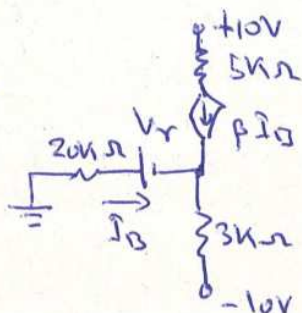 +10V
5KΩ
Vγ
βIB
20KΩ
IB
3KΩ
-10V